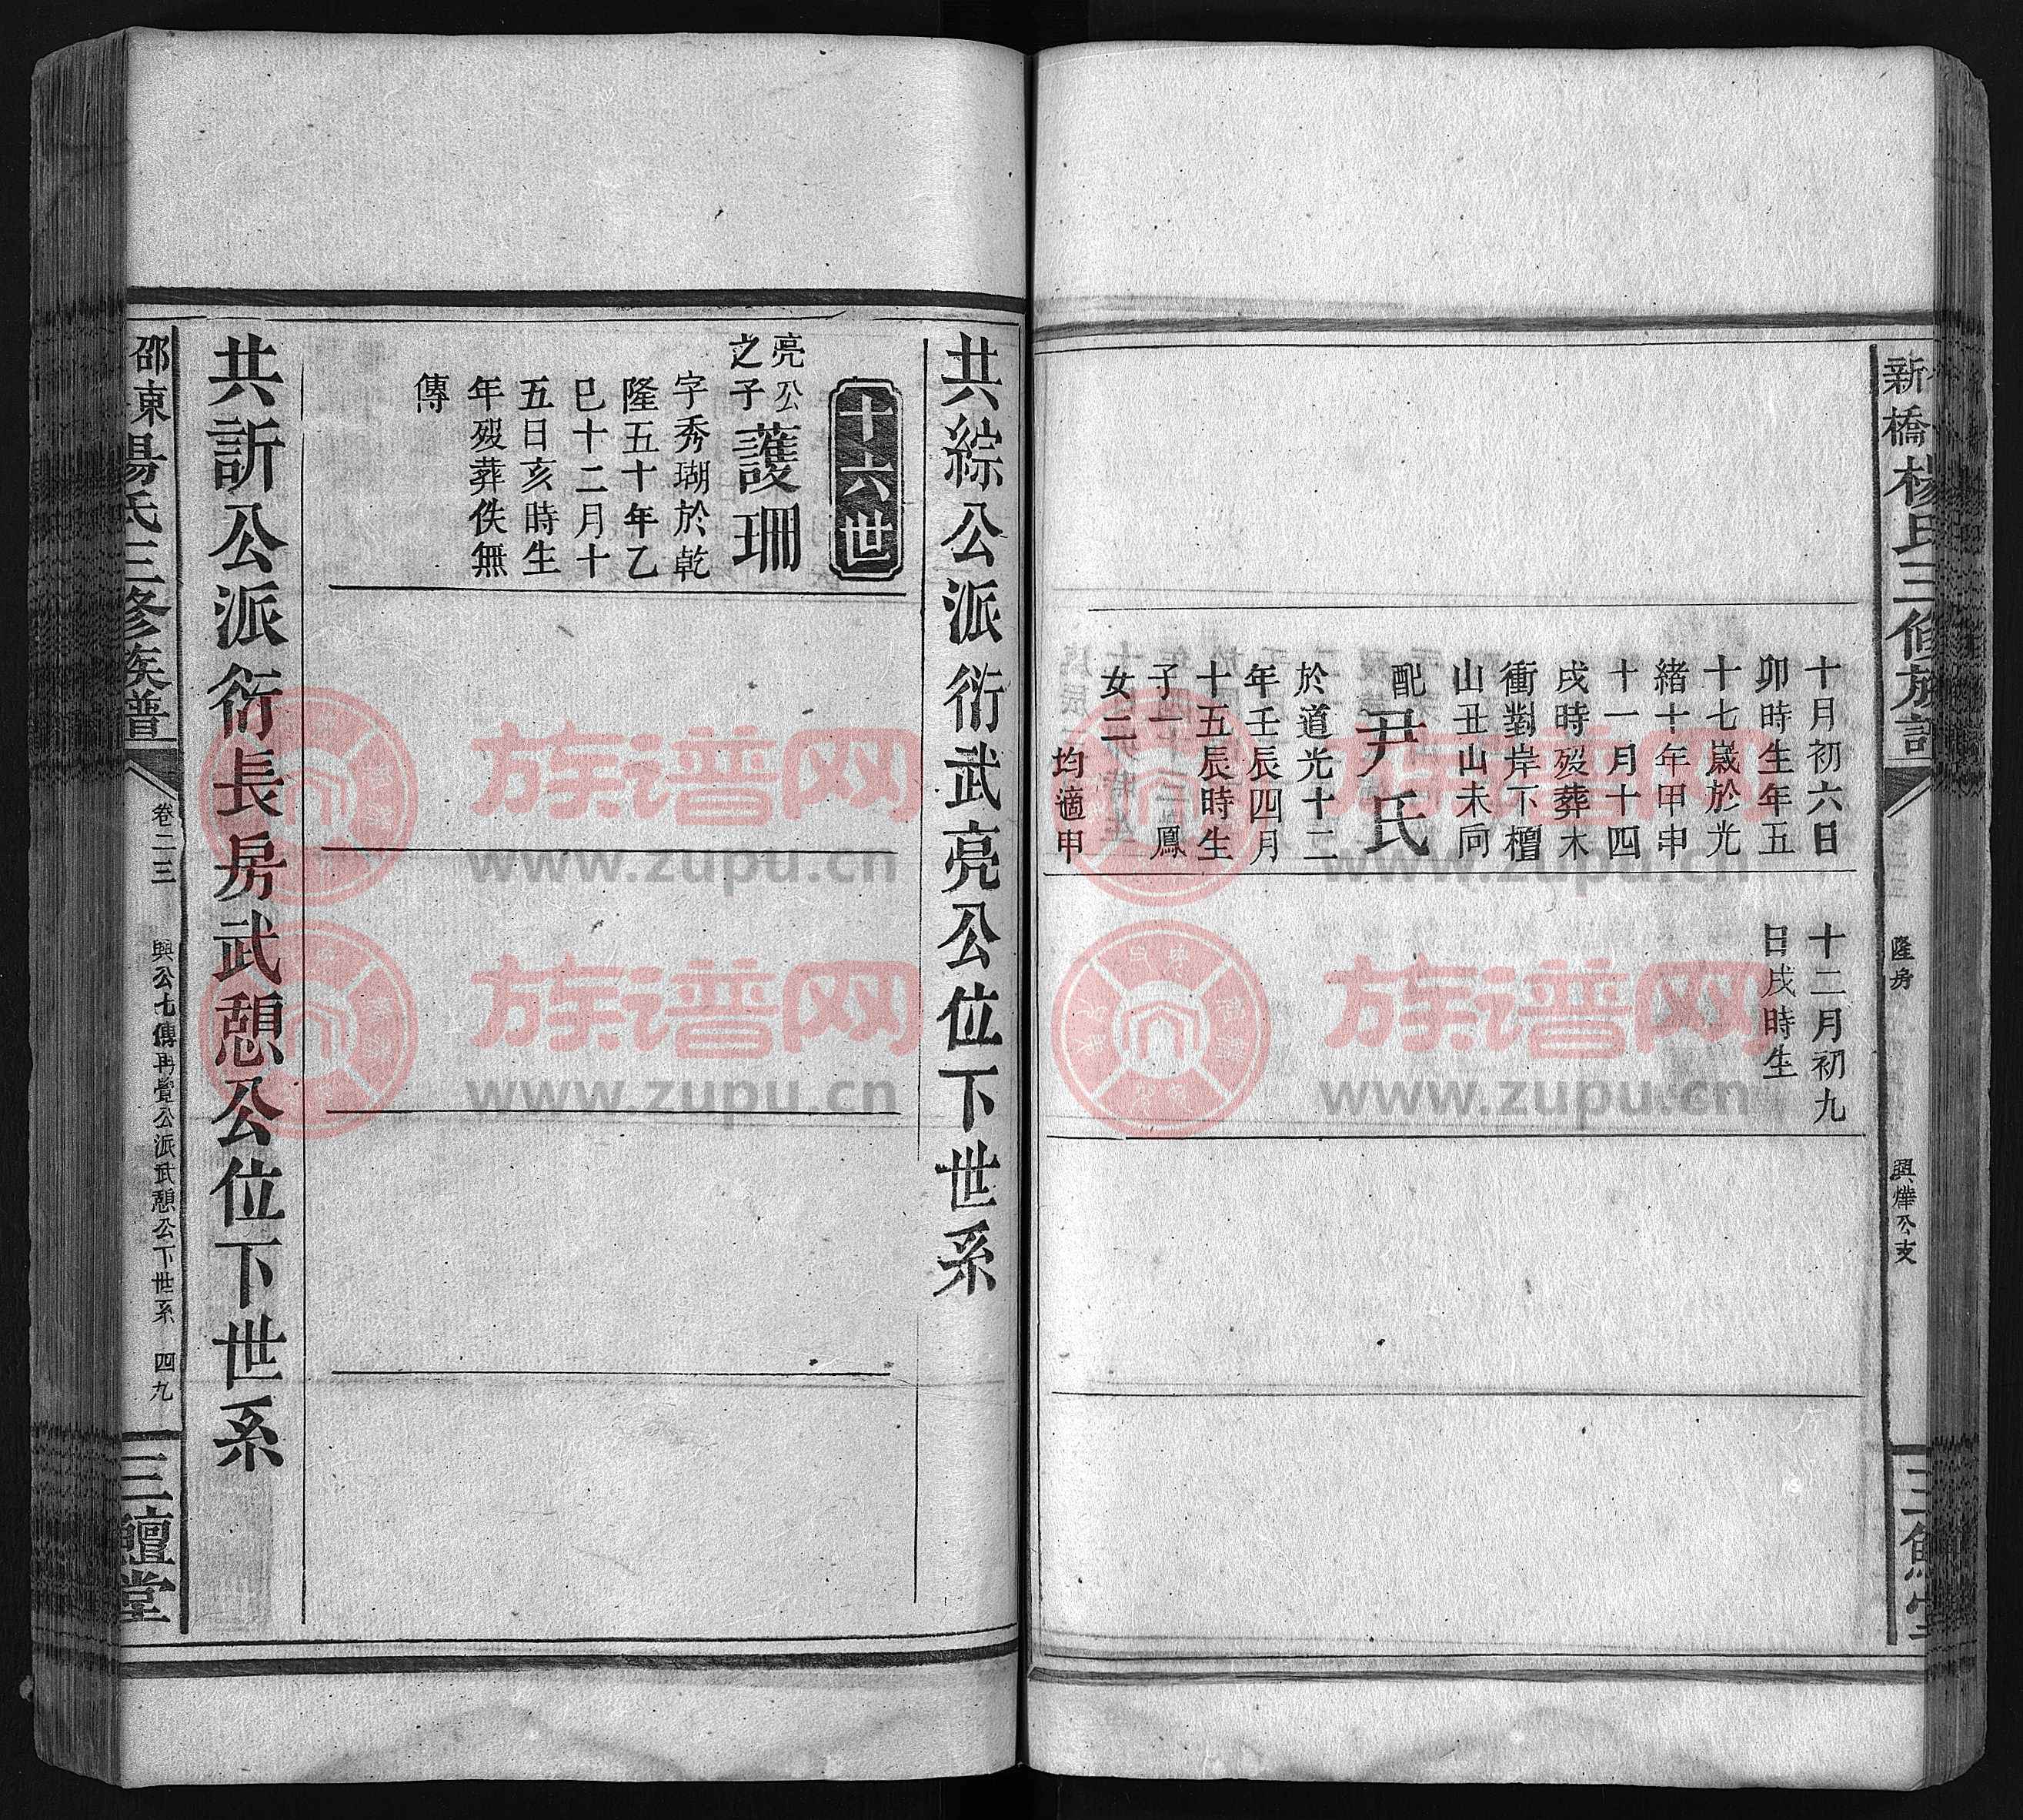 新橋楊氏三修族譜
隆房
興燁公支
十月初六日
卯時生年五
十七歲於光
緒十年甲申
十一月十四
戌時歿葬木
衝對岸下檀
山丑山未向
配尹氏
於道光十二
年壬辰四月
十五辰時生
子一 鳳
女二
均適申
十二月初九
日戌時生
共綜公派衍武亮公位下世系
十六世
亮公
之子護珊
字秀瑚於乾
隆五十年乙
巳十二月十
五日亥時生
年歿葬佚無
傳
共訢公派衍長房武憩公位下世系
邵東楊氏三修族譜
卷二三
興公七傳再覺公派武憩公下世系
四九
三鱣堂
族谱网
www.zupu.cn
族谱网
www.zupu.cn
族谱网
www.zupu.cn
族谱网
www.zupu.cn